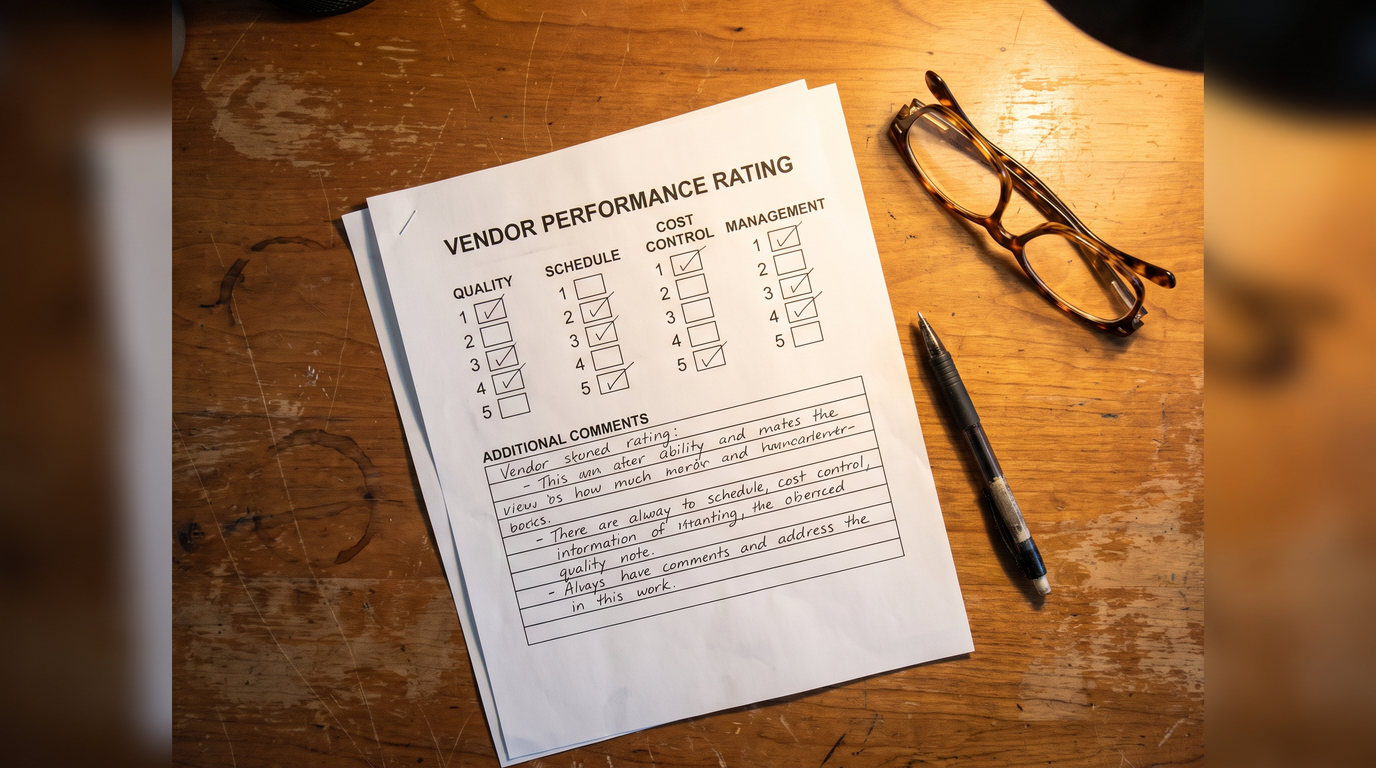 VENDOR PERFORMANCE RATING
QUALITY
1
2
3
4
5
SCHEDULE
1
2
3
4
5
COST
CONTROL
1
2
3
4
5
MANAGEMENT
1
2
3
4
5
ADDITIONAL COMMENTS
Vendor rating:
- This after ability and mates the
view how much and
- There are alway to schedule, cost control,
information of the
quality note.
- Always have comments and address the
in this work.